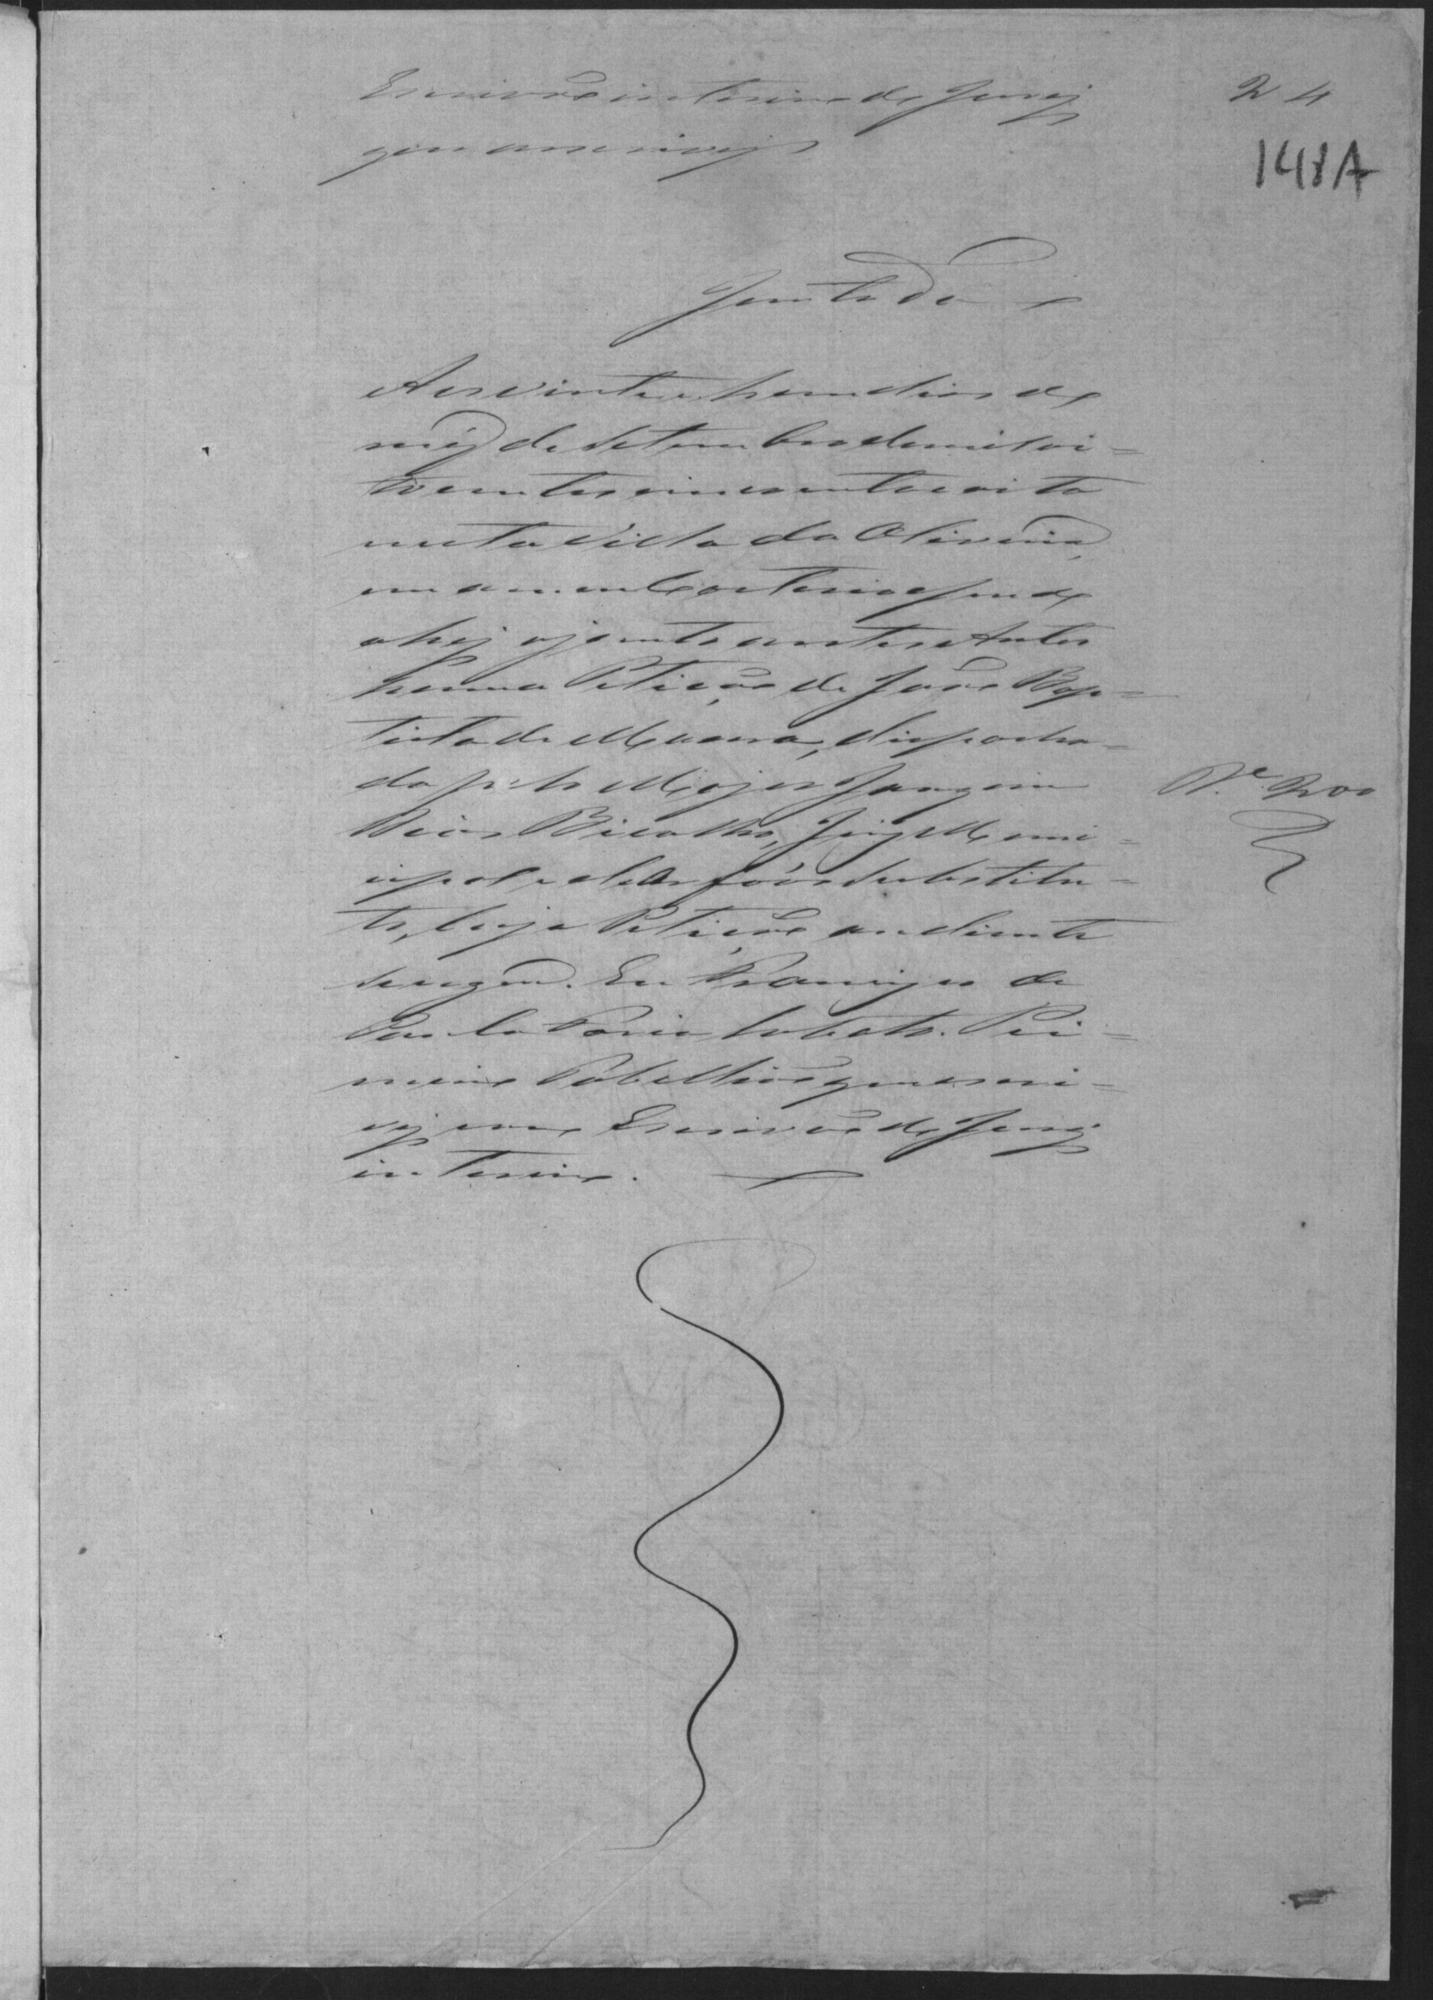 Escrivão interino do Jury
que a escrevy
24
148A
Juntada
Aos vinte e hum dias do
mez de Setembro de mil oi=
to centos cincoenta e oito
nesta Villa da Oliveira,
em o meu Cartorio sendo
ahy ajunto a estes Autos
huma Petição de João Bap=
tista de Moura, despacha=
da pelo Major Joaquim
Dias Bicalho, Juiz Muni=
cipal e de Orfãos substitu=
to, cuja Petição ao diante
segue. Eu Francisco de
Paula Lobato. Pri=
meiro Tabellião que escre=
vy como Escrivão do Jury
interino.
200